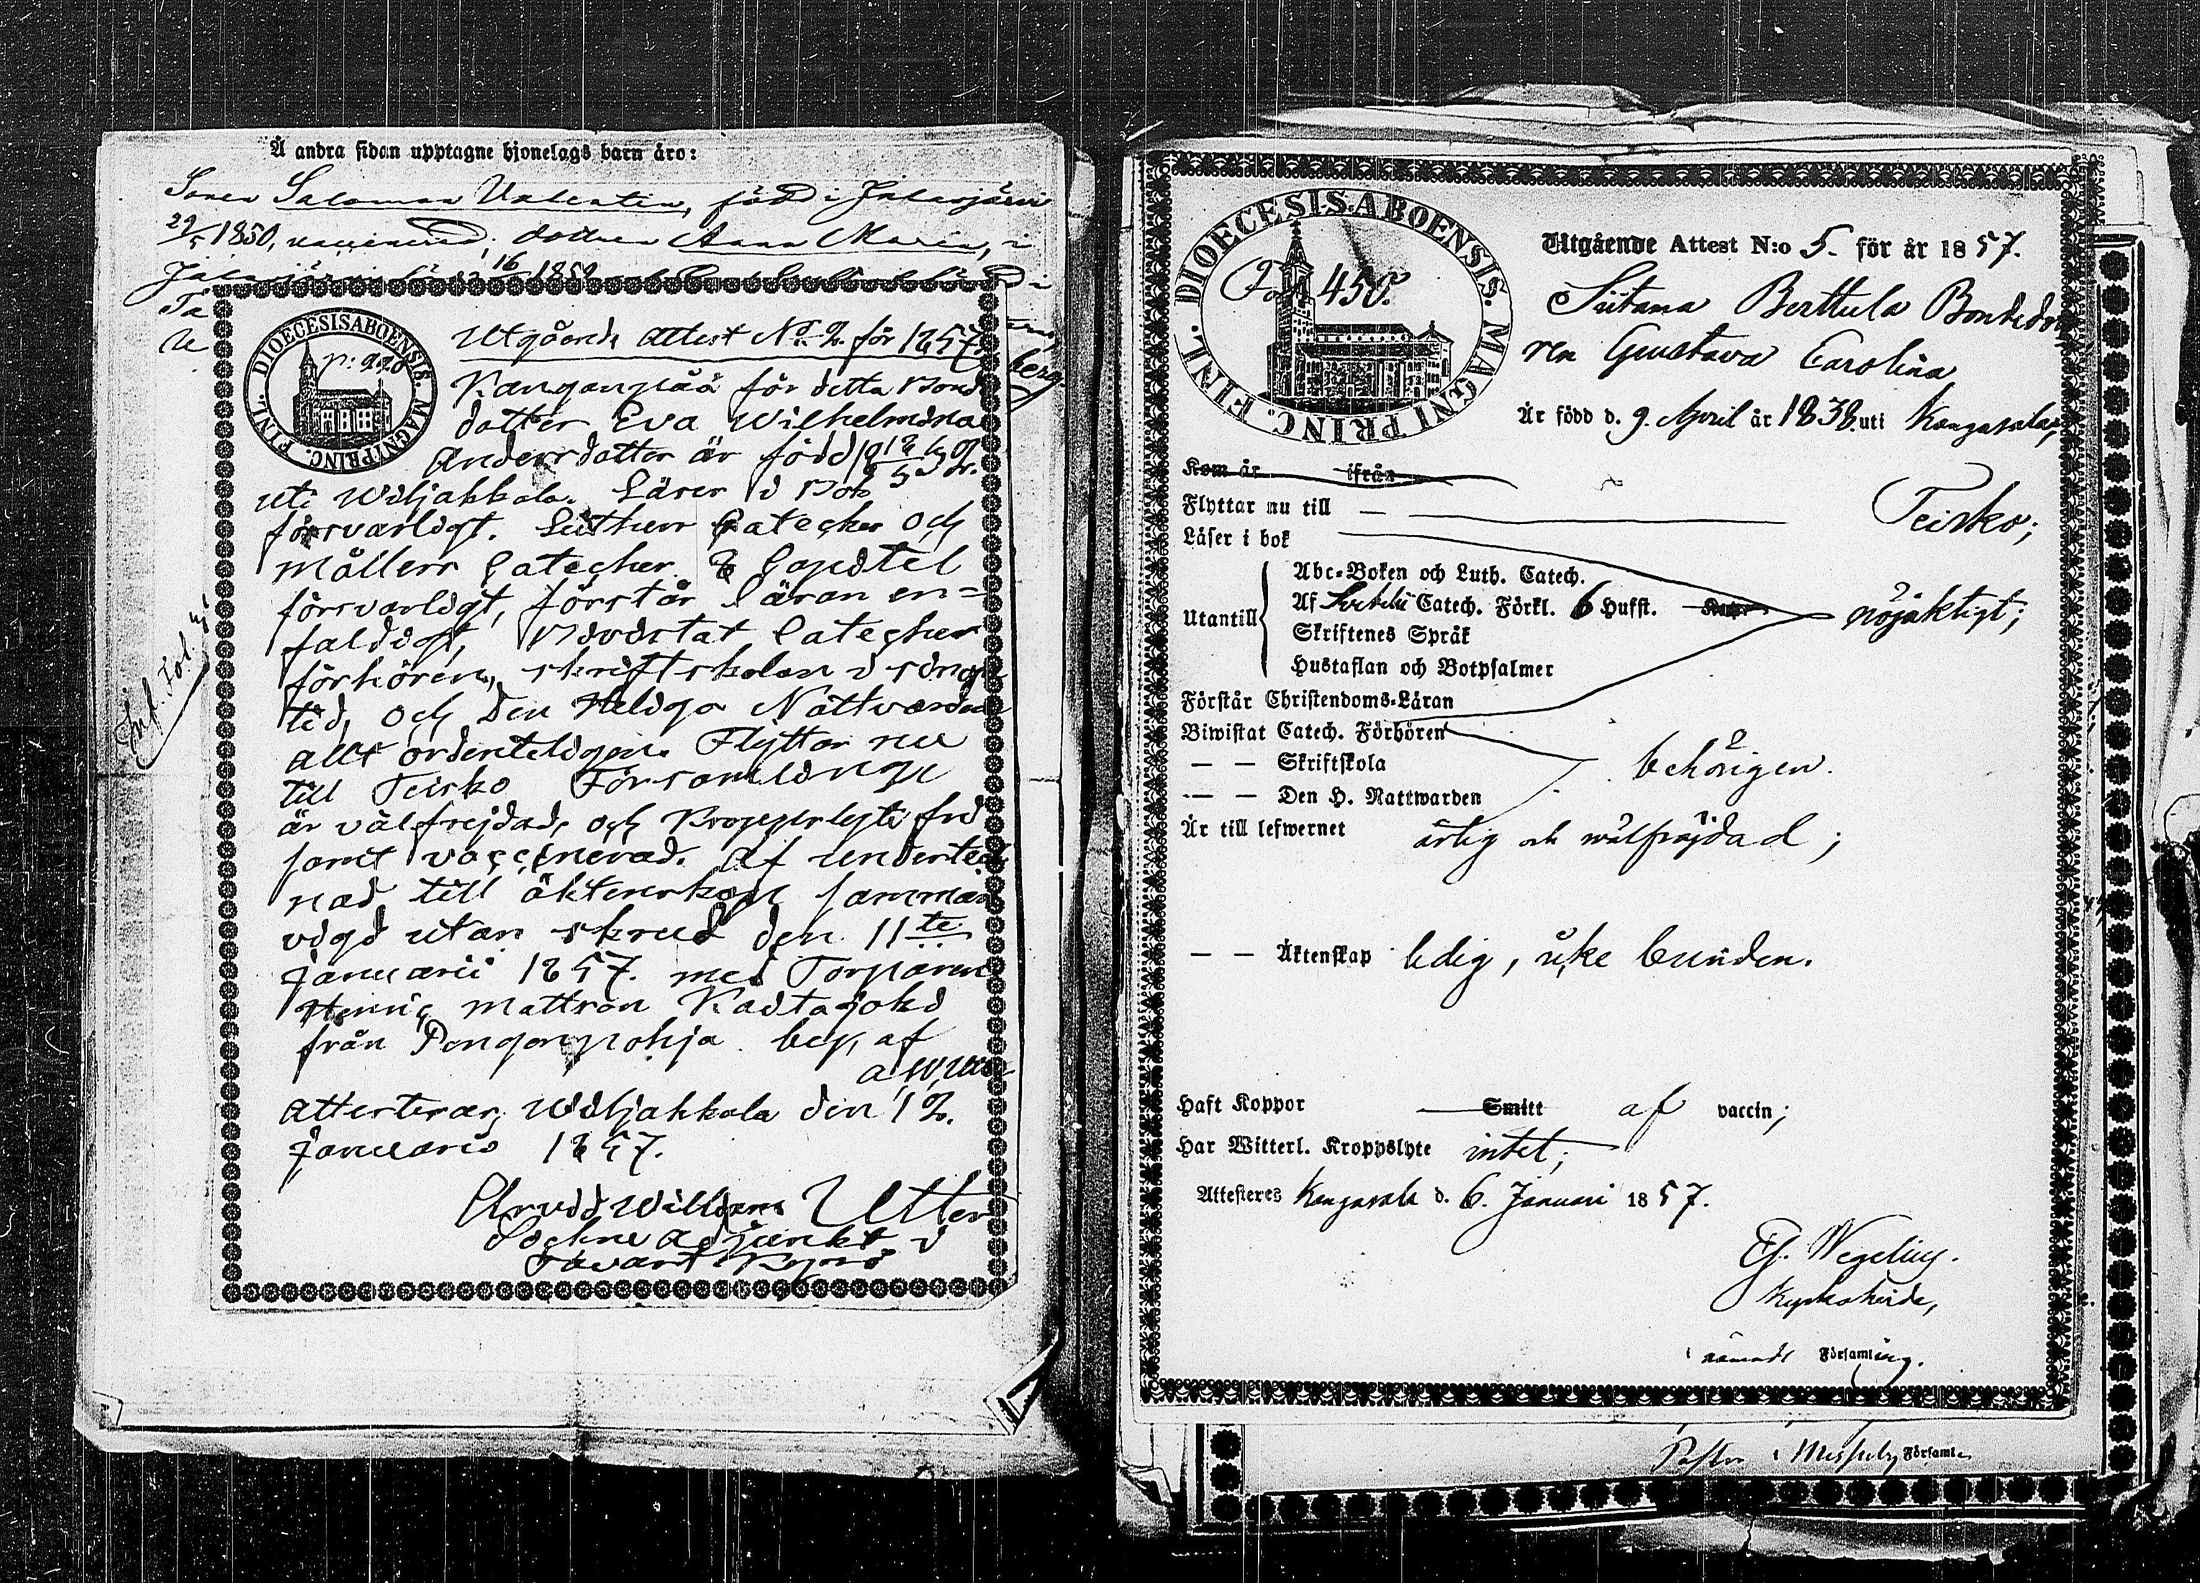 Å andra sidan upptagne hjonelags barn äro:
Sonen Salomon Valentin, född i Jalasjärvi
29/5 1850, vaccinerad; dottren Anna Maria, i
DIOECESIS ABOENSIS. MAGNI PRINC. FINL.
p: 220
Utgående Attest No. 2. för 1857.
Kanganpää för detta Bond
dotter Eva Wilhelmina
Andersdotter är född
uti Wiljakkala. Läser i Bok
försvarligt. Luthers Cateches och
Möllers Cateches 8 Capitel
försvarligt, förstår Läran en=
faldigt, Bivistat Cateches
förhören, skriftskolan i sinom
tid, och Den Heliga Nattvarden
allt ordenteligen. Flyttar nu
till Teisko Församling
är välfrejdad, och Kroppslyte fri
samt vaccinerad. Af underteck
nad till äktenskap samman
vigd utan skrud den 11te
Januarii 1857. med Torparen
Mattson
från Pengonpohja beg. af
A. W. Utter
Attesterar, Wiljakkala den 12.
Januarii 1857.
Arvid William Utter
Sockne Adjunkt i
Tavast Kyrö
DIOECESIS. ABOENSIS. MAGNI PRINC. FINL.
Pag 450.
Utgående Attest N:o 5. för år 1857.
Siitama Berttula Bondedott
ren Gustava Carolina
Är född d. 9. April år 1838. uti Kangasala;
Kom år ifrån
Flyttar nu till Teisko;
Läser i bok
Utantill
Abc-Boken och Luth. Catech.
Af Svebelii Catech. Förkl. 6 Hufst. nöjaktigt;
Skriftenes Språk
Hustaflan och Botpsalmer
Förstår Christendoms-Läran
Biwistat Catech. Förhören
— — Skriftskola behörigen.
— — Den H. Nattwarden
Är till lefwernet ärlig och välfräjdad;
— — Äktenskap ledig, icke bunden.
Haft Koppor Smitt af vaccin;
Har Witterl. Kroppslyte intet;
Attesteres Kangasala d. 6. Januari 1857.
Wegelius.
Kyrkoherde,
i nämnde Församling.
Pastor i Messuby Församl.